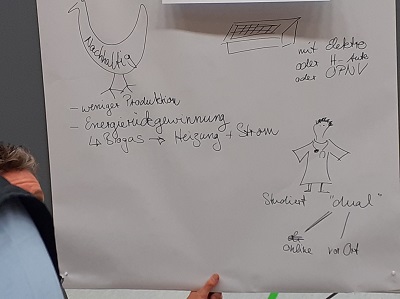 Nachhaltig
mit Elektro
oder H-Auto
oder ÖPNV
- weniger Produktion
- Energierückgewinnung
↳ Biogas → Heizung + Strom
Studiert "dual"
online vor Ort